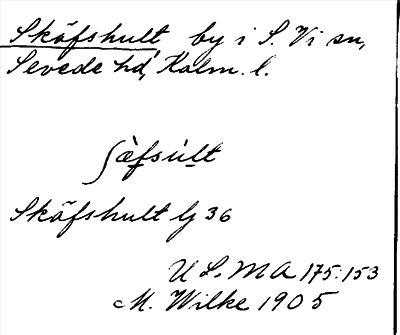 Skäfshult by i S. Vi sn,
Sevede hd, Kalm. l.
ʃæ̀fsúlt
Skäfshult lj 36
U L. M A 175:153
M. Wilke 1905